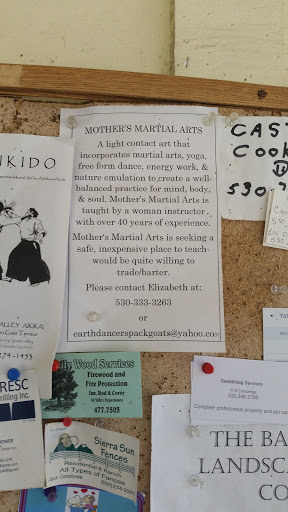 MOTHER'S MARTIAL ARTS
A light contact art that
incorporates martial arts, yoga,
free form dance, energy work, &
nature emulation to create a well-
balanced practice for mind, body,
& soul. Mother's Martial Arts is
taught by a woman instructor,
with over 40 years of experience.
Mother's Martial Arts is seeking a
safe, inexpensive place to teach-
would be quite willing to
trade/barter.
Please contact Elizabeth at:
530-333-3263
or
earthdancerspackgoats@yahoo.com
IKIDO
ALLEY AIKIKAI
274-1453
CAS
Cook
530-7
ily Wood Services
Firewood and
Fire Protection
Jim, Rod & Corey
477-7503
RESC
rilling inc.
Sierra Sun
Fences
Residential & Ranch
All Types of Fences
Jack Goodwin
Saddlebag Services
THE BA
LANDSCA
CO